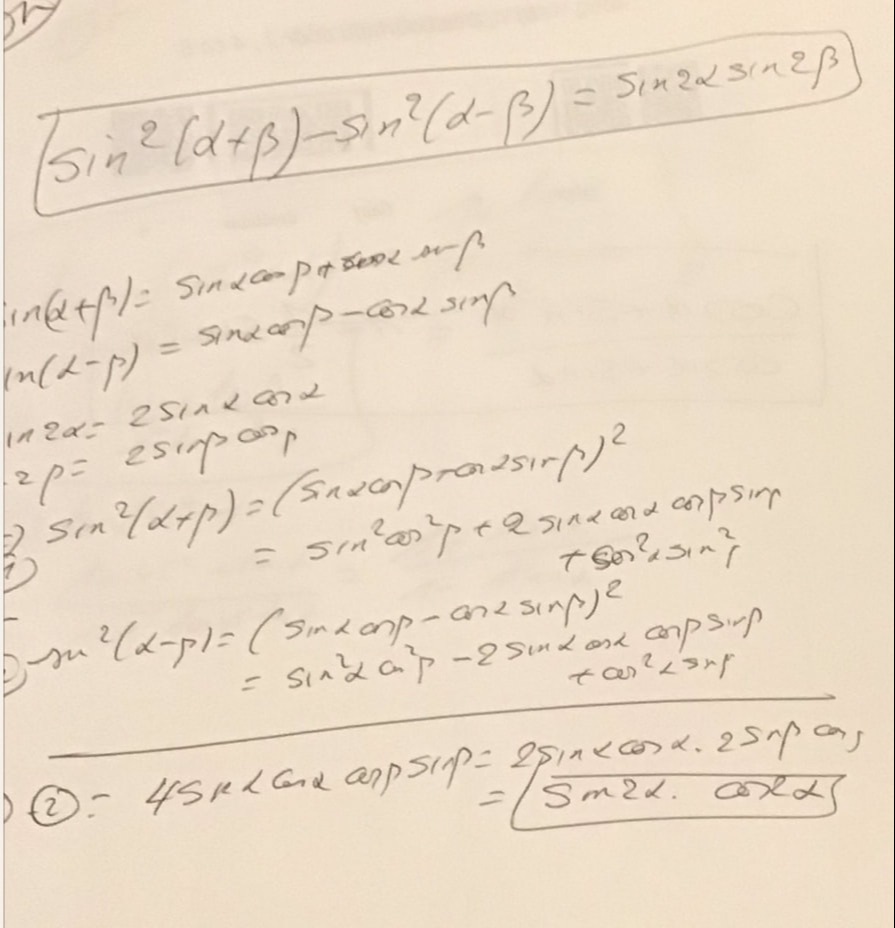 sin²(α+β)-sin²(α-β) = sin2α sin2β
in(α+β)= sinα cosβ + cosα sinβ
in(α-β) = sinα cosβ - cosα sinβ
in 2α = 2 sinα cosα
2β = 2 sinβ cosβ
⇒ sin²(α+β) = (sinα cosβ + cosα sinβ)²
= sin² cos²β + 2 sinα cosα cosβ sinβ
+ cos²α sin²β
sin²(α-β) = (sinα cosβ - cosα sinβ)²
= sin²α cos²β - 2 sinα cosα cosβ sinβ
+ cos²α sinβ
② = 4 sinα cosα cosβ sinβ = 2 sinα cosα . 2 sinβ cos
= sin2α . cos2α